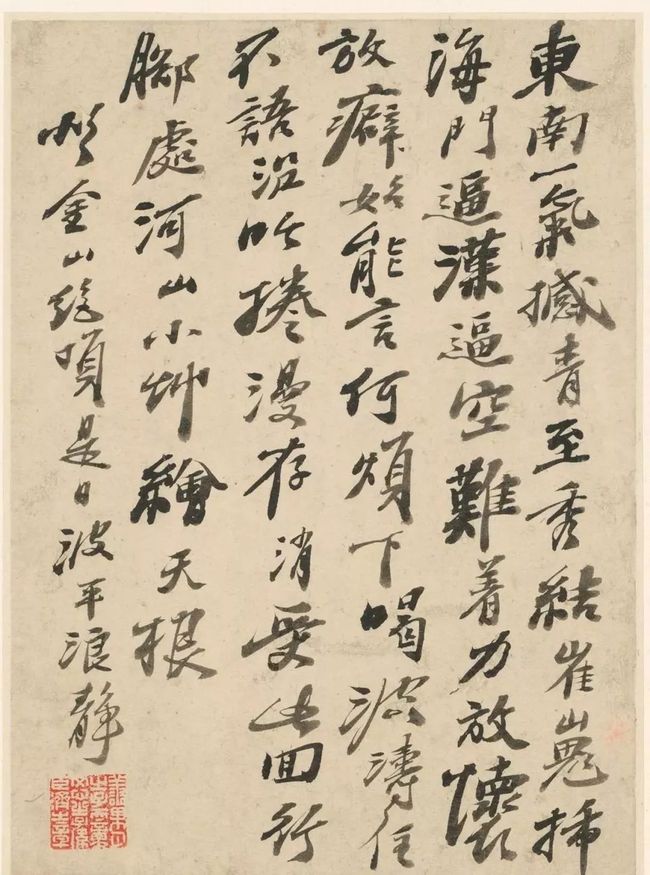 東南一氣撼青至秀結崔嵬掃
海門逼漢逼空難着力放懷
放癖始能言何煩下喝波濤住
不語沿捲漫存消受此回行
腳處河山小艸繪天根
登金山絕頂是日波平浪靜